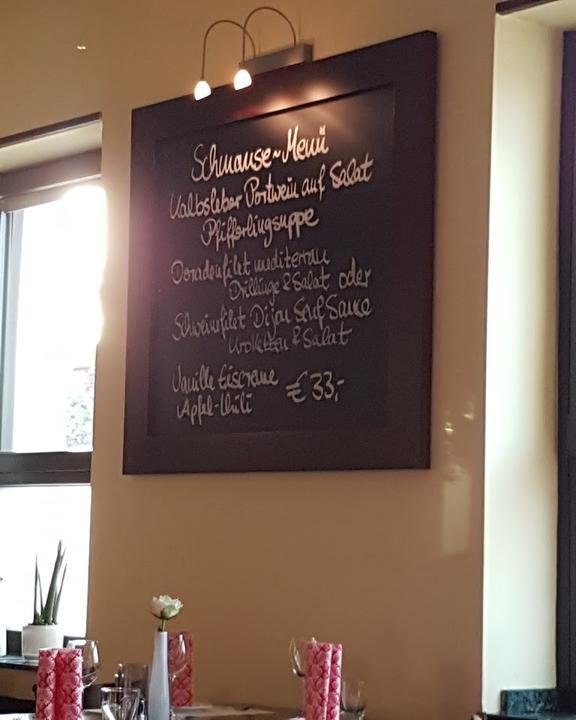 Schmause~Menü
Kalbsleber Portwein auf Salat
Pfifferlingsuppe
Doradenfilet mediterran
Drillinge & Salat oder
Schweinefilet Dijon Senf Sauce
Kroketten & Salat
Vanille Eiscreme € 33,-
Apfel-Chili